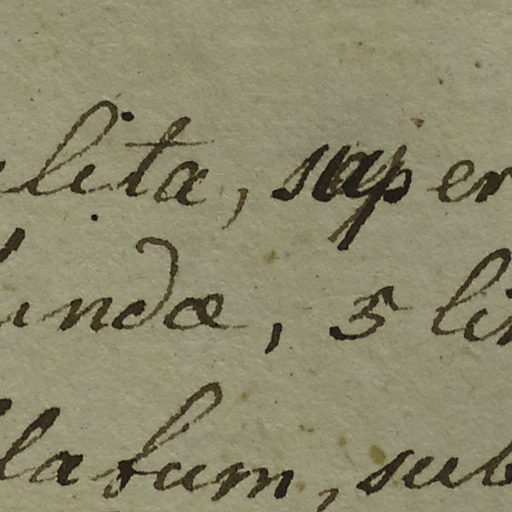 lita, super
undæ, 5 lin
latum, sub